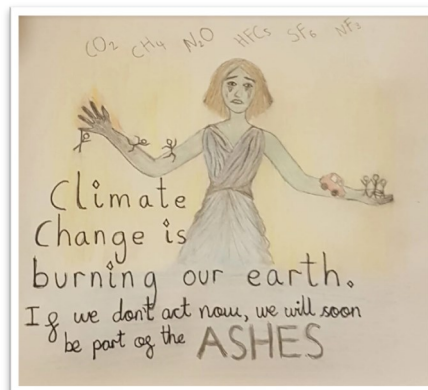 CO2 CH4 N2O HFCs SF6 NF3
Climate
Change is
burning our earth.
If we don't act now, we will soon
be part of the ASHES